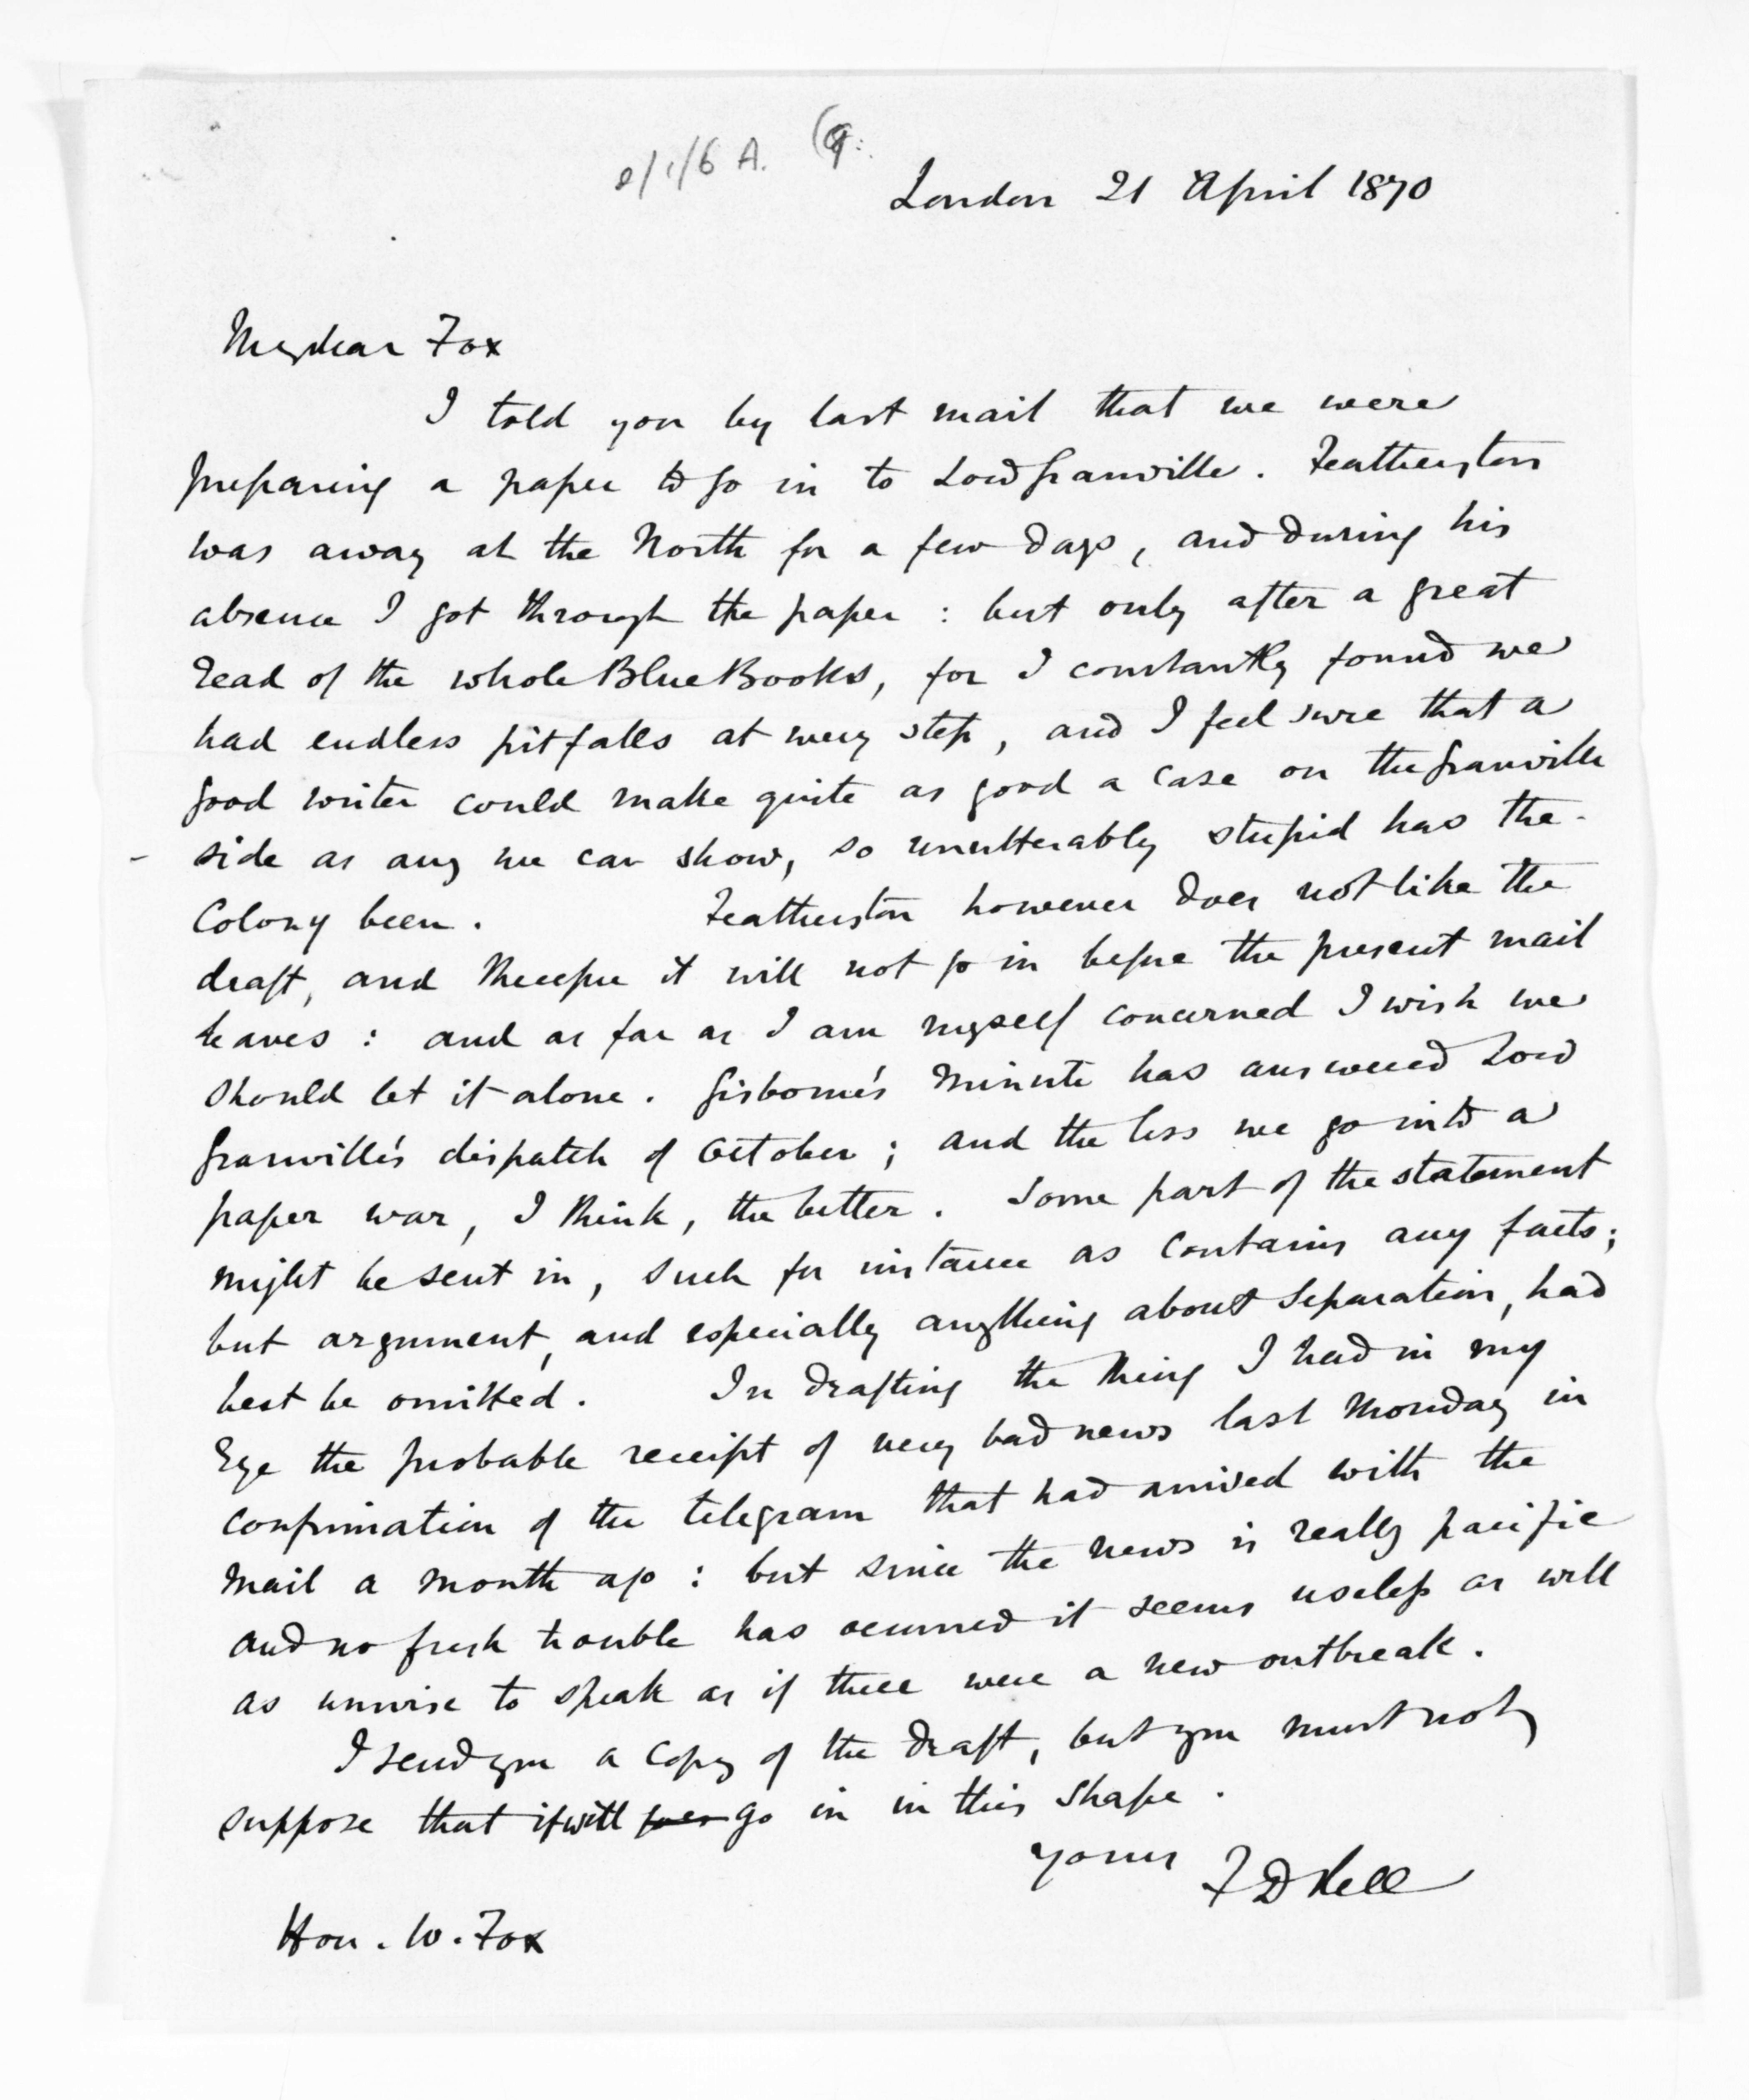 London 21 April 1870
My dear Fox
I told you by last mail that we were
preparing a paper to go in to Lord Granville. Featherston
was away at the North for a few days, and during his
absence I got through the paper: but only after a great
read of the whole Blue Books, for I constantly found we
had endless pitfalls at every step, and I feel sure that a
good writer could make quite as good a case on the Granville
side as any we can show, so unutterably stupid has the
Colony been. Featherston however does not like the
draft, and therefore it will not go in before the present mail
leaves: and as far as I am myself concerned I wish we
should let it alone. Gisborne's Minute has answered Lord
Granville's dispatch of October; and the less we go into a
paper war, I think, the better. Some part of the statement
might be sent in, such for instance as contains any facts;
but argument, and especially anything about Separation, had
best be omitted. In drafting the thing I had in my
Eye the probable receipt of very bad news last Monday in
confirmation of the telegram that had arrived with the
Mail a month ago: but since the news is really pacific
and no fresh trouble has occurred it seems useless as well
as unwise to speak as if there were a new outbreak.
I send you a copy of the draft, but you must not
suppose that it will goes go in in this shape.
Yours F D Bell
Hon. W. Fox